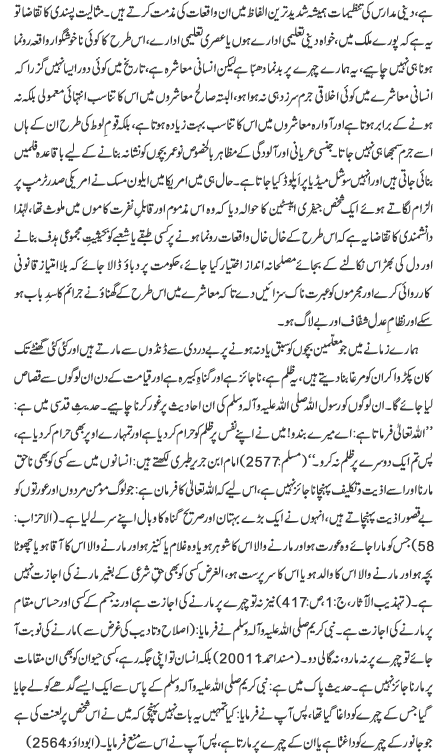 ہے، دینی مدارس کی تنظیمات ہمیشہ شدید ترین الفاظ میں ان واقعات کی مذمت کرتے ہیں۔ مثالیت پسندی کا تقاضا تو
یہ ہے کہ پورے ملک میں، خواہ دینی تعلیمی ادارے ہوں یا عصری تعلیمی ادارے، اس طرح کا کوئی ناخوشگوار واقعہ رونما
ہونا ہی نہیں چاہیے، یہ ہمارے چہرے پر بدنما دھبّا ہے لیکن انسانی معاشرہ ہے، تاریخ میں کوئی دور ایسا نہیں گزرا کہ
انسانی معاشرے میں کوئی اخلاقی جرم سرزد ہی نہ ہوا ہو، البتہ صالح معاشروں میں اس کا تناسب انتہائی معمولی بلکہ نہ
ہونے کے برابر ہوتا ہے اور آوارہ معاشروں میں اس کا تناسب بہت زیادہ ہوتا ہے، بلکہ قومِ لوط کی طرح ان کے ہاں
اسے جرم سمجھا ہی نہیں جاتا۔ جنسی عریانی اور آلودگی کے مظاہر بالخصوص نوعمر بچوں کو نشانہ بنانے کے لیے باقاعدہ فلمیں
بنائی جاتی ہیں اور انہیں سوشل میڈیا پر اَپلوڈ کیا جاتا ہے۔ حال ہی میں امریکا میں ایلون مسک نے امریکی صدر ٹرمپ پر
الزام لگاتے ہوئے ایک شخص جیفری ایپسٹین کا حوالہ دیا کہ وہ اس مذموم اور قابلِ نفرت کاموں میں ملوث تھا، لہٰذا
دانشمندی کا تقاضا یہ ہے کہ اس طرح کے خال خال واقعات رونما ہونے پر کسی طبقے یا شعبے کو بحیثیتِ مجموعی ہدف بنانے
اور دل کی بھڑاس نکالنے کے بجائے مصلحانہ انداز اختیار کیا جائے، حکومت پر دباؤ ڈالا جائے کہ بلاامتیاز قانونی
کارروائی کرے اور مجرموں کو عبرت ناک سزائیں دے تاکہ معاشرے میں اس طرح کے گھناؤنے جرائم کا سدِّ باب ہو
سکے اور نظامِ عدل شفاف اور بے لاگ ہو۔
ہمارے زمانے میں جو معلمین بچوں کو سبق یاد نہ ہونے پر بے دردی سے ڈنڈوں سے مارتے ہیں اور کئی کئی گھنٹے تک
کان پکڑوا کر ان کو مرغا بنا دیتے ہیں، یہ ظلم ہے، ناجائز ہے اور گناہِ کبیرہ ہے اور قیامت کے دن ان لوگوں سے قصاص
لیا جائے گا۔ ان لوگوں کو رسول اللہ صلی اللہ علیہ وآلہ وسلم کی ان احادیث پر غور کرنا چاہیے۔ حدیثِ قدسی میں ہے:
’’اللہ تعالیٰ فرماتا ہے: اے میرے بندو! میں نے اپنے نفس پر ظلم کو حرام کر دیا ہے اور تمہارے اوپر بھی حرام کر دیا ہے،
پس تم ایک دوسرے پر ظلم نہ کرو۔‘‘ (مسلم: 2577) امام ابن جریر طبری لکھتے ہیں: انسانوں میں سے کسی کو بھی ناحق
مارنا اور اسے اذیت و تکلیف پہنچانا جائز نہیں ہے، اس لیے کہ اللہ تعالیٰ کا فرمان ہے: جو لوگ مؤمن مردوں اور عورتوں کو
بے قصور اذیت پہنچاتے ہیں، انہوں نے ایک بڑے بہتان اور صریح گناہ کا وبال اپنے سر لے لیا ہے۔ (الاحزاب:
58) جس کو مارا جائے وہ عورت ہو اور مارنے والا اس کا شوہر ہو یا وہ غلام یا کنیز ہو اور مارنے والا اس کا آقا ہو یا چھوٹا
بچہ ہو اور مارنے والا اس کا والد ہو یا اس کا سرپرست ہو، الغرض کسی کو بھی حق شرعی کے بغیر مارنے کی اجازت نہیں
ہے۔ (تہذیب الآثار، ج: 1، ص: 417) نیز نہ تو چہرے پر مارنے کی اجازت ہے اور نہ جسم کے کسی اور حساس مقام
پر مارنے کی اجازت ہے۔ نبی کریم صلی اللہ علیہ وآلہ وسلم نے فرمایا: (اصلاح و تادیب کی غرض سے) مارنے کی نوبت آ
جائے تو چہرے پر نہ مارو، نہ گالی دو۔ (مسند احمد: 20011) بلکہ انسان تو اپنی جگہ رہے، کسی حیوان کو بھی ان مقامات
پر مارنا جائز نہیں ہے۔ حدیث پاک میں ہے: نبی کریم صلی اللہ علیہ وآلہ وسلم کے پاس سے ایک ایسے گدھے کو لے جایا
گیا جس کے چہرے کو داغا گیا تھا، پس آپ نے فرمایا: کیا تمہیں یہ بات نہیں پہنچی کہ میں نے اس شخص پر لعنت کی ہے
جو جانور کے چہرے کو داغتا ہے یا ان کے چہرے پر مارتا ہے، پس آپ نے اس سے منع فرمایا۔ (ابوداؤد: 2564)